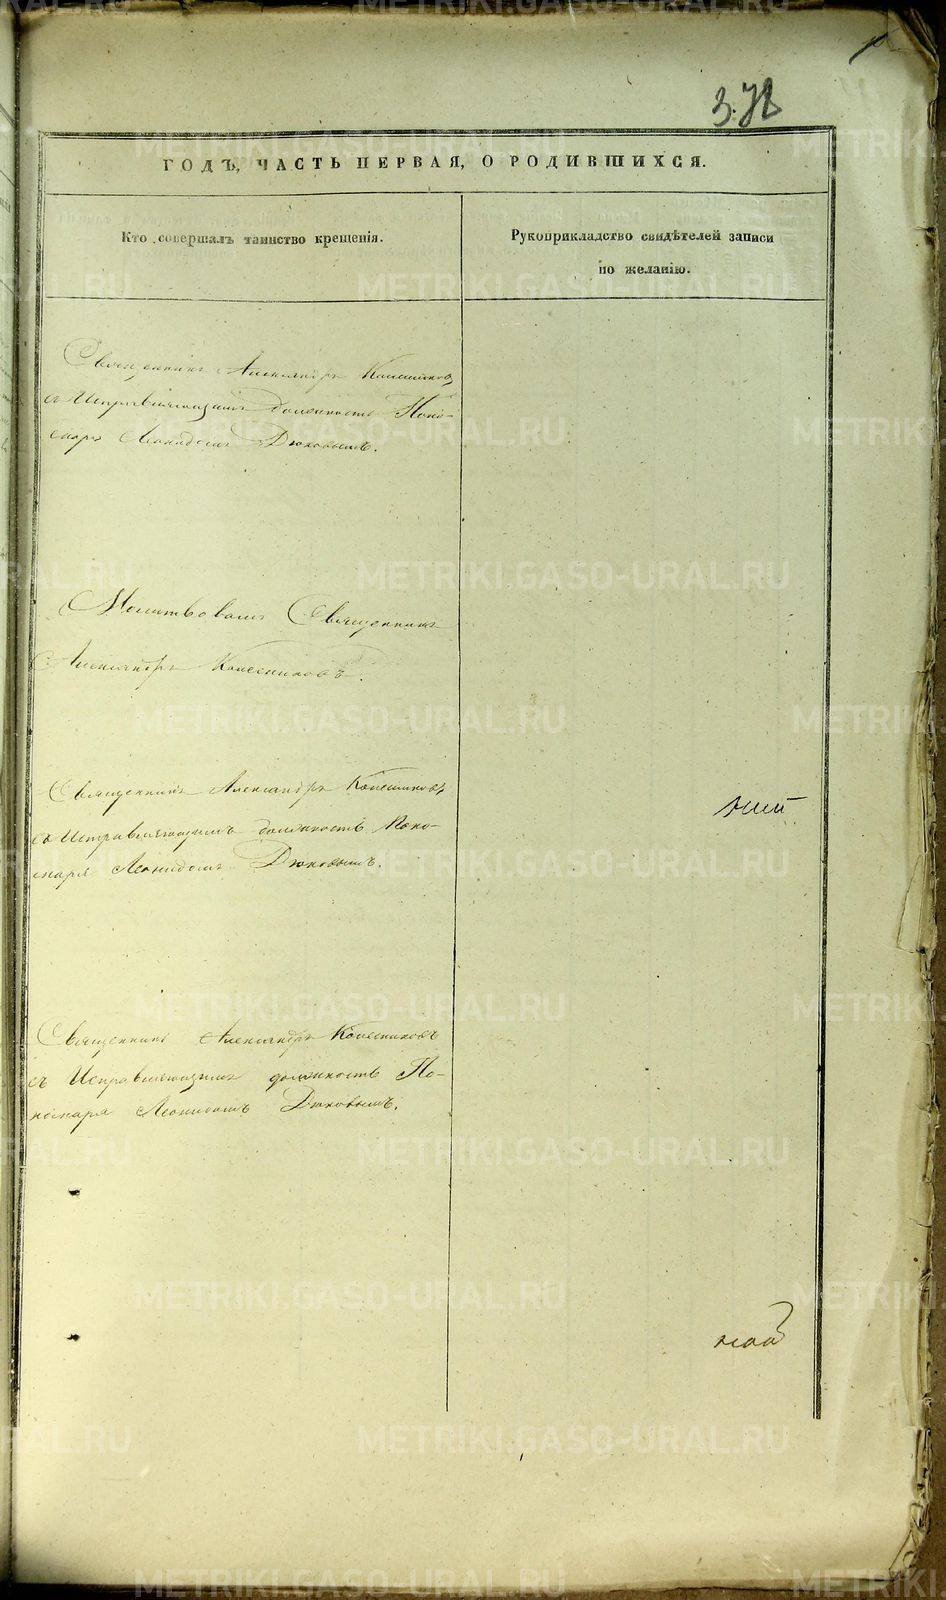 378
ГОДЪ, ЧАСТЬ ПЕРВАЯ, О РОДИВШИХСЯ.
Кто совершалъ таинство крещенія.
Рукоприкладство свидѣтелей записи
по желанію.
Священникъ Александръ Колесниковъ
съ Исправляющимъ должность Поно-
маря Леонидомъ Дюковымъ.
Молитвовалъ Священникъ
Александръ Колесниковъ.
Священникъ Александръ Колесниковъ
съ Исправляющимъ должность Поно-
маря Леонидомъ Дюковымъ.
Священникъ Александръ Колесниковъ
съ Исправляющимъ должность По-
номаря Леонидомъ Дюковымъ.
METRIKI.GASO-URAL.RU